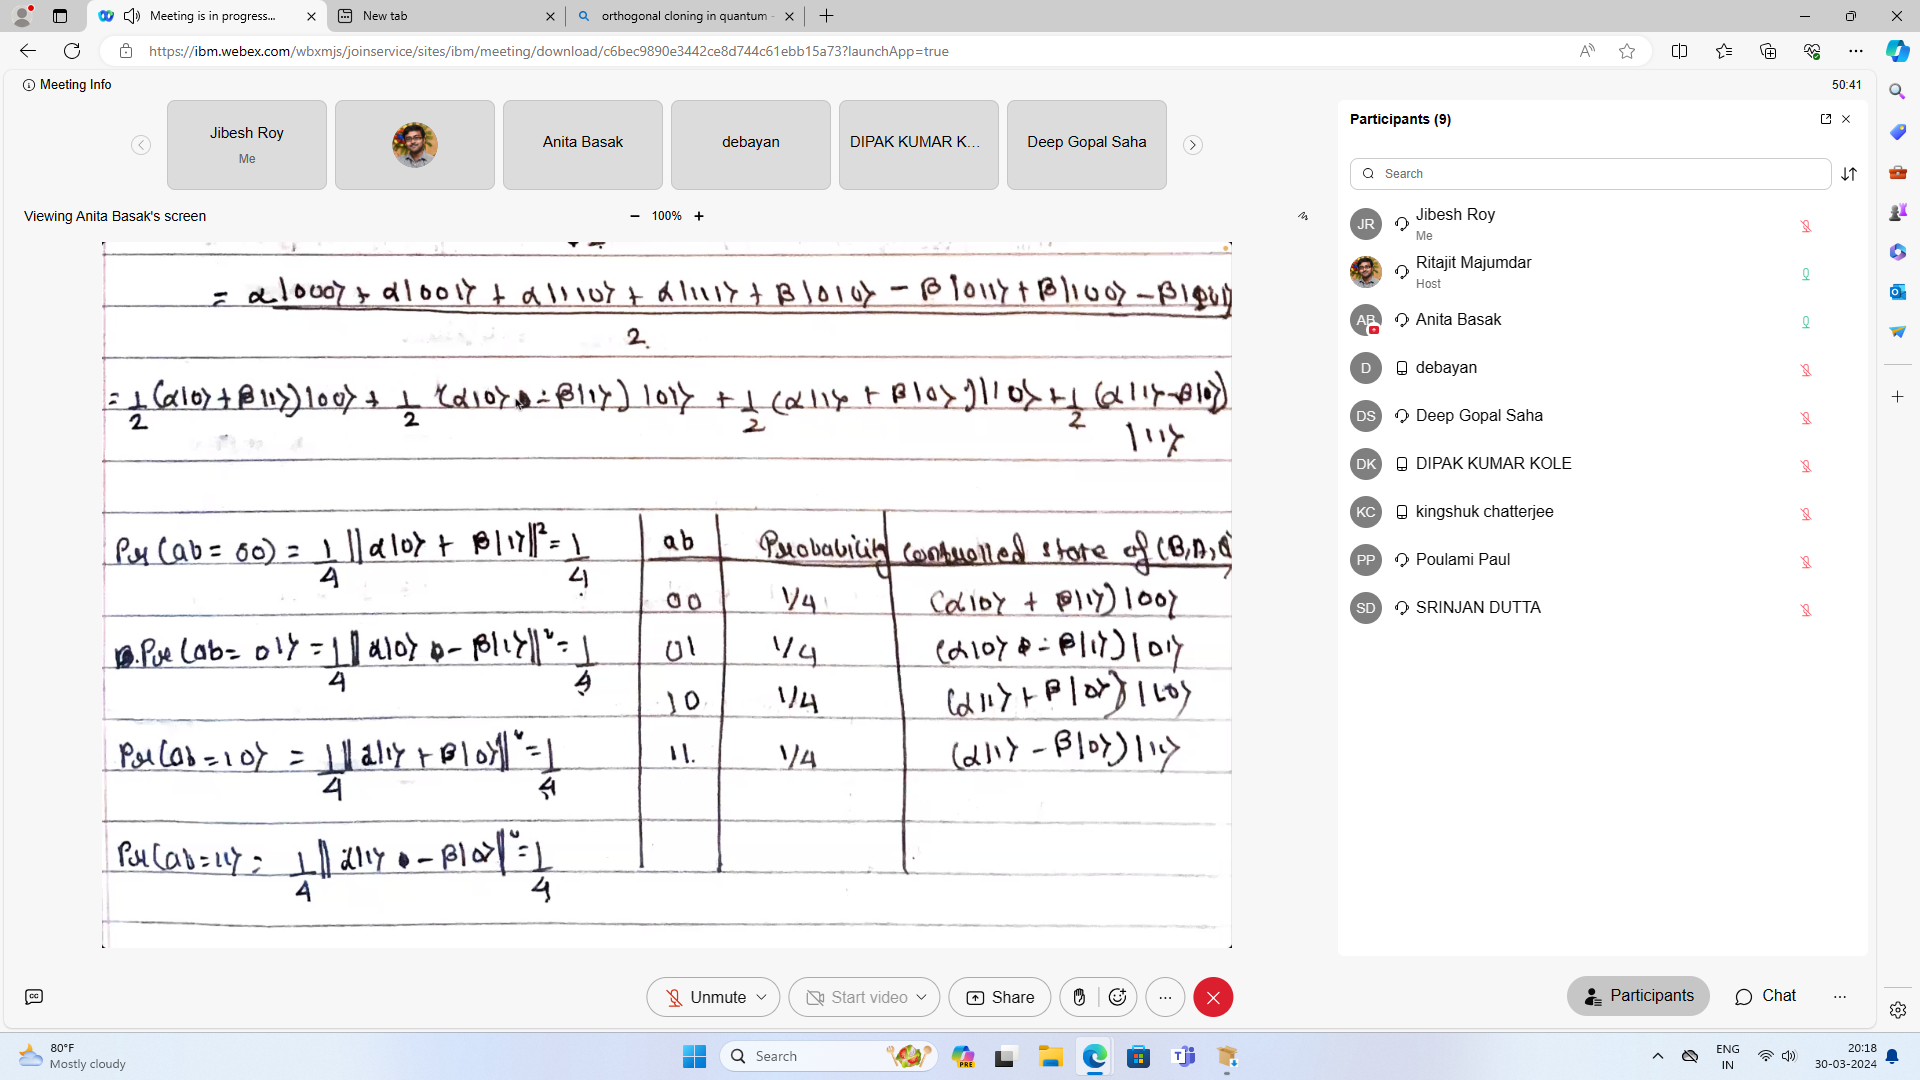 Meeting is in progress...
New tab
orthogonal cloning in quantum -
https://ibm.webex.com/wbxmjs/joinservice/sites/ibm/meeting/download/c6bec9890e3442ce8d744c61ebb15a73?launchApp=true
Meeting Info
50:41
Jibesh Roy
Me
Anita Basak
debayan
DIPAK KUMAR K...
Deep Gopal Saha
Viewing Anita Basak's screen
100%
= α|000⟩ + α|001⟩ + α|110⟩ + α|111⟩ + β|010⟩ - β|011⟩ + β|100⟩ - β|101⟩
2
= 1/2 (α|0⟩ + β|1⟩)|00⟩ + 1/2 (α|0⟩ - β|1⟩)|01⟩ + 1/2 (α|1⟩ + β|0⟩)|10⟩ + 1/2 (α|1⟩ - β|0⟩)
|11⟩
Pr(ab = 00) = 1/4 ||α|0⟩ + β|1⟩||² = 1/4
Pr(ab = 01⟩ = 1/4 ||α|0⟩ - β|1⟩||² = 1/4
Pr(ab = 10⟩ = 1/4 ||α|1⟩ + β|0⟩||² = 1/4
Pr(ab = 11⟩ = 1/4 ||α|1⟩ - β|0⟩||² = 1/4
ab Probability controlled state of (B,A,
00 1/4 (α|0⟩ + β|1⟩)|00⟩
01 1/4 (α|0⟩ - β|1⟩)|01⟩
10 1/4 (α|1⟩ + β|0⟩)|10⟩
11. 1/4 (α|1⟩ - β|0⟩)|11⟩
Participants (9)
Search
JR Jibesh Roy
Me
Ritajit Majumdar
Host
AB Anita Basak
D debayan
DS Deep Gopal Saha
DK DIPAK KUMAR KOLE
KC kingshuk chatterjee
PP Poulami Paul
SD SRINJAN DUTTA
Unmute
Start video
Share
Participants
Chat
80°F
Mostly cloudy
Search
PRE
ENG
IN
20:18
30-03-2024